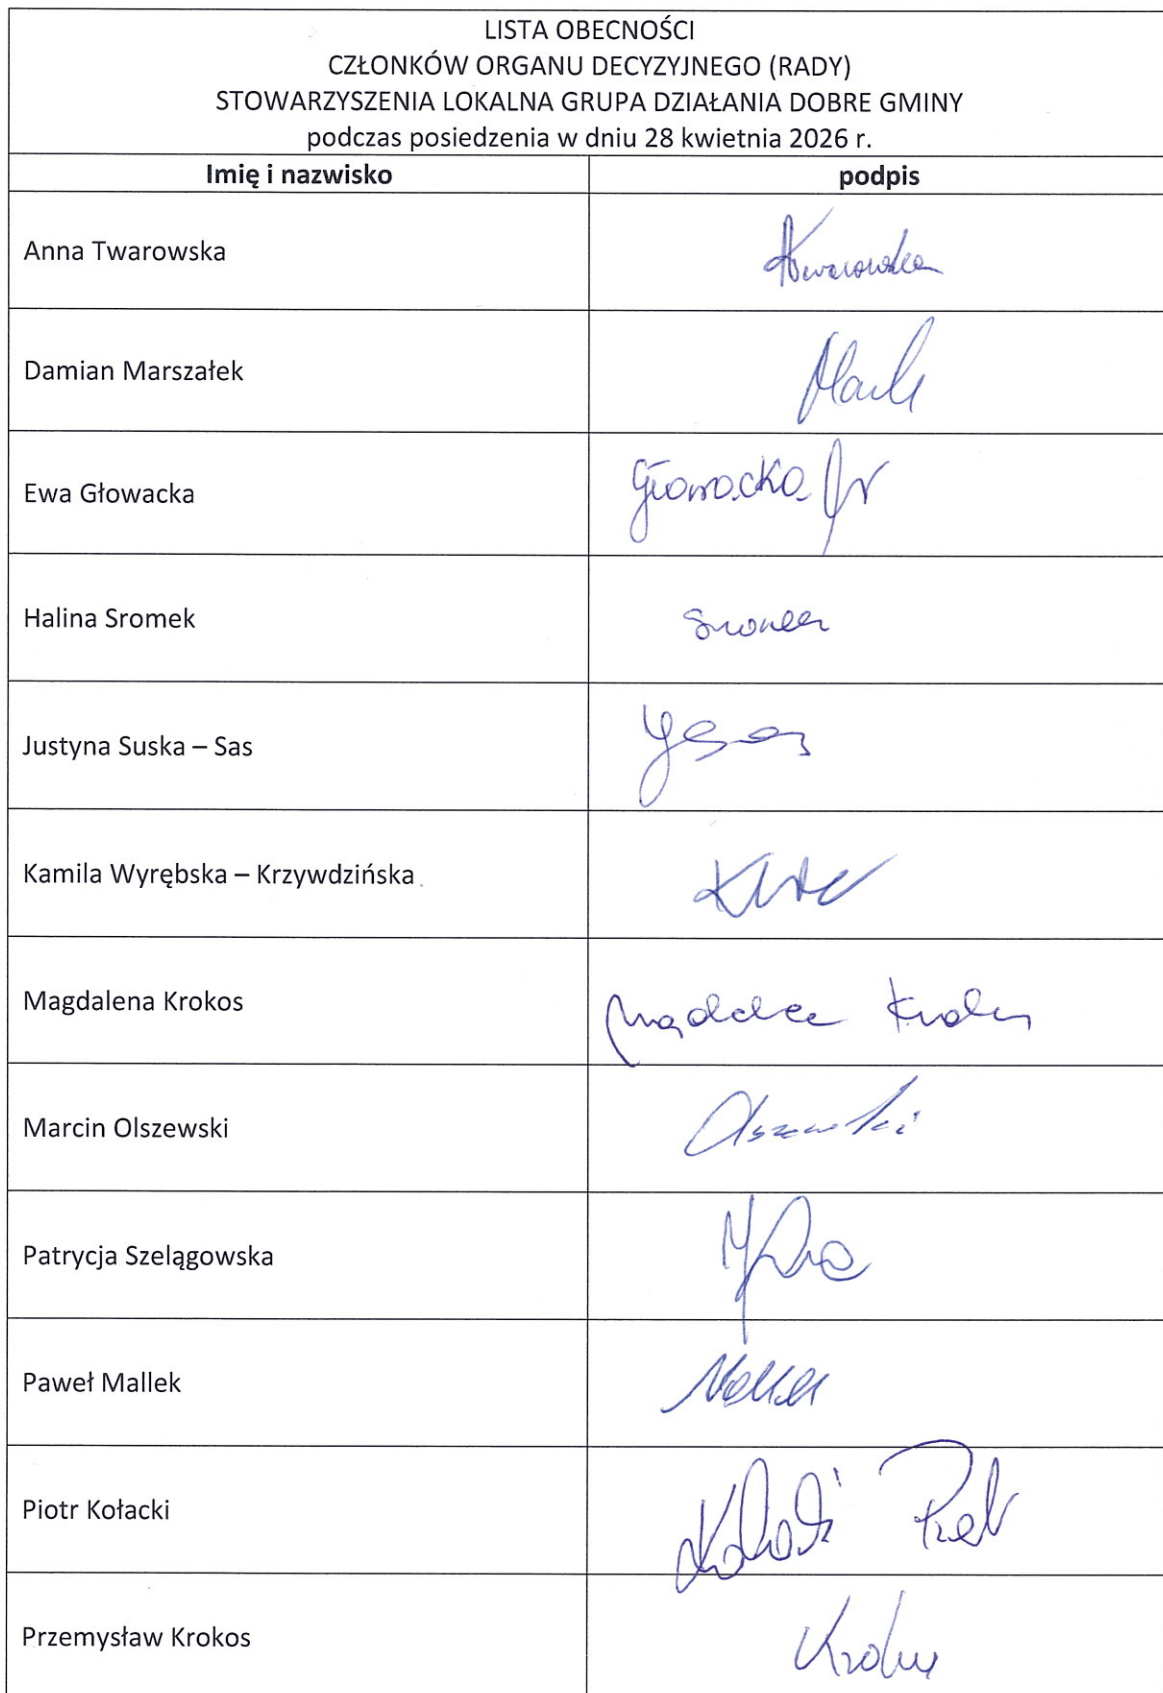 LISTA OBECNOŚCI
CZŁONKÓW ORGANU DECYZYJNEGO (RADY)
STOWARZYSZENIA LOKALNA GRUPA DZIAŁANIA DOBRE GMINY
podczas posiedzenia w dniu 28 kwietnia 2026 r.
Imię i nazwisko podpis
Anna Twarowska
Damian Marszałek
Ewa Głowacka Głowacka
Halina Sromek Sromek
Justyna Suska – Sas
Kamila Wyrębska – Krzywdzińska
Magdalena Krokos
Marcin Olszewski Olszewski
Patrycja Szelągowska
Paweł Mallek Mallek
Piotr Kołacki
Przemysław Krokos